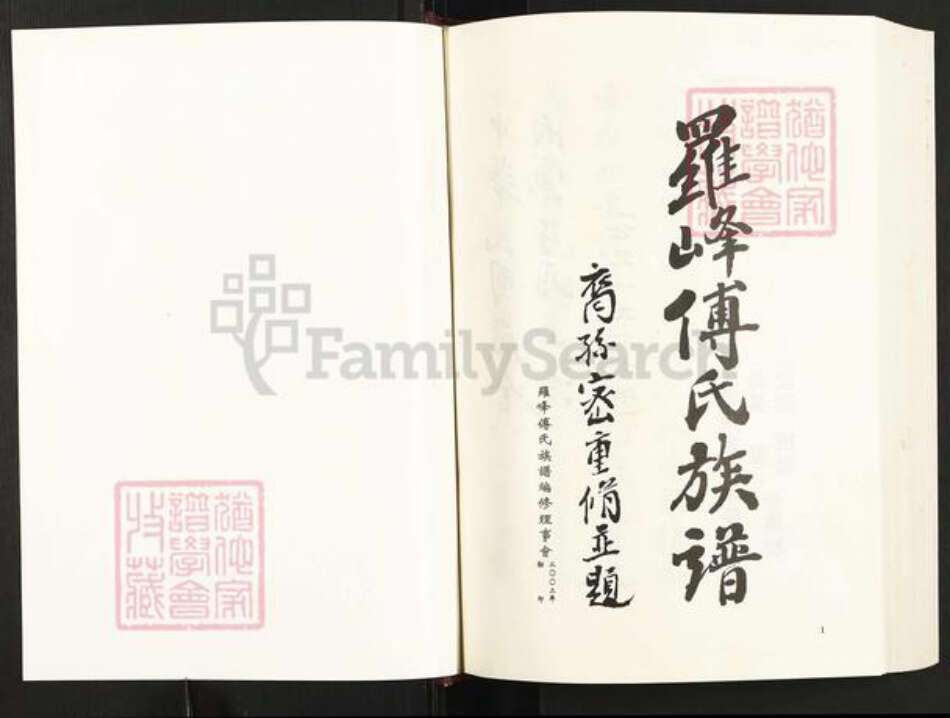 羅峰傅氏族譜
裔孫密重脩並題
羅峰傅氏族譜編修理事會
二〇〇二年
印
1
猶他家
譜學會
收藏
猶他家
譜學會
收藏
FamilySearch